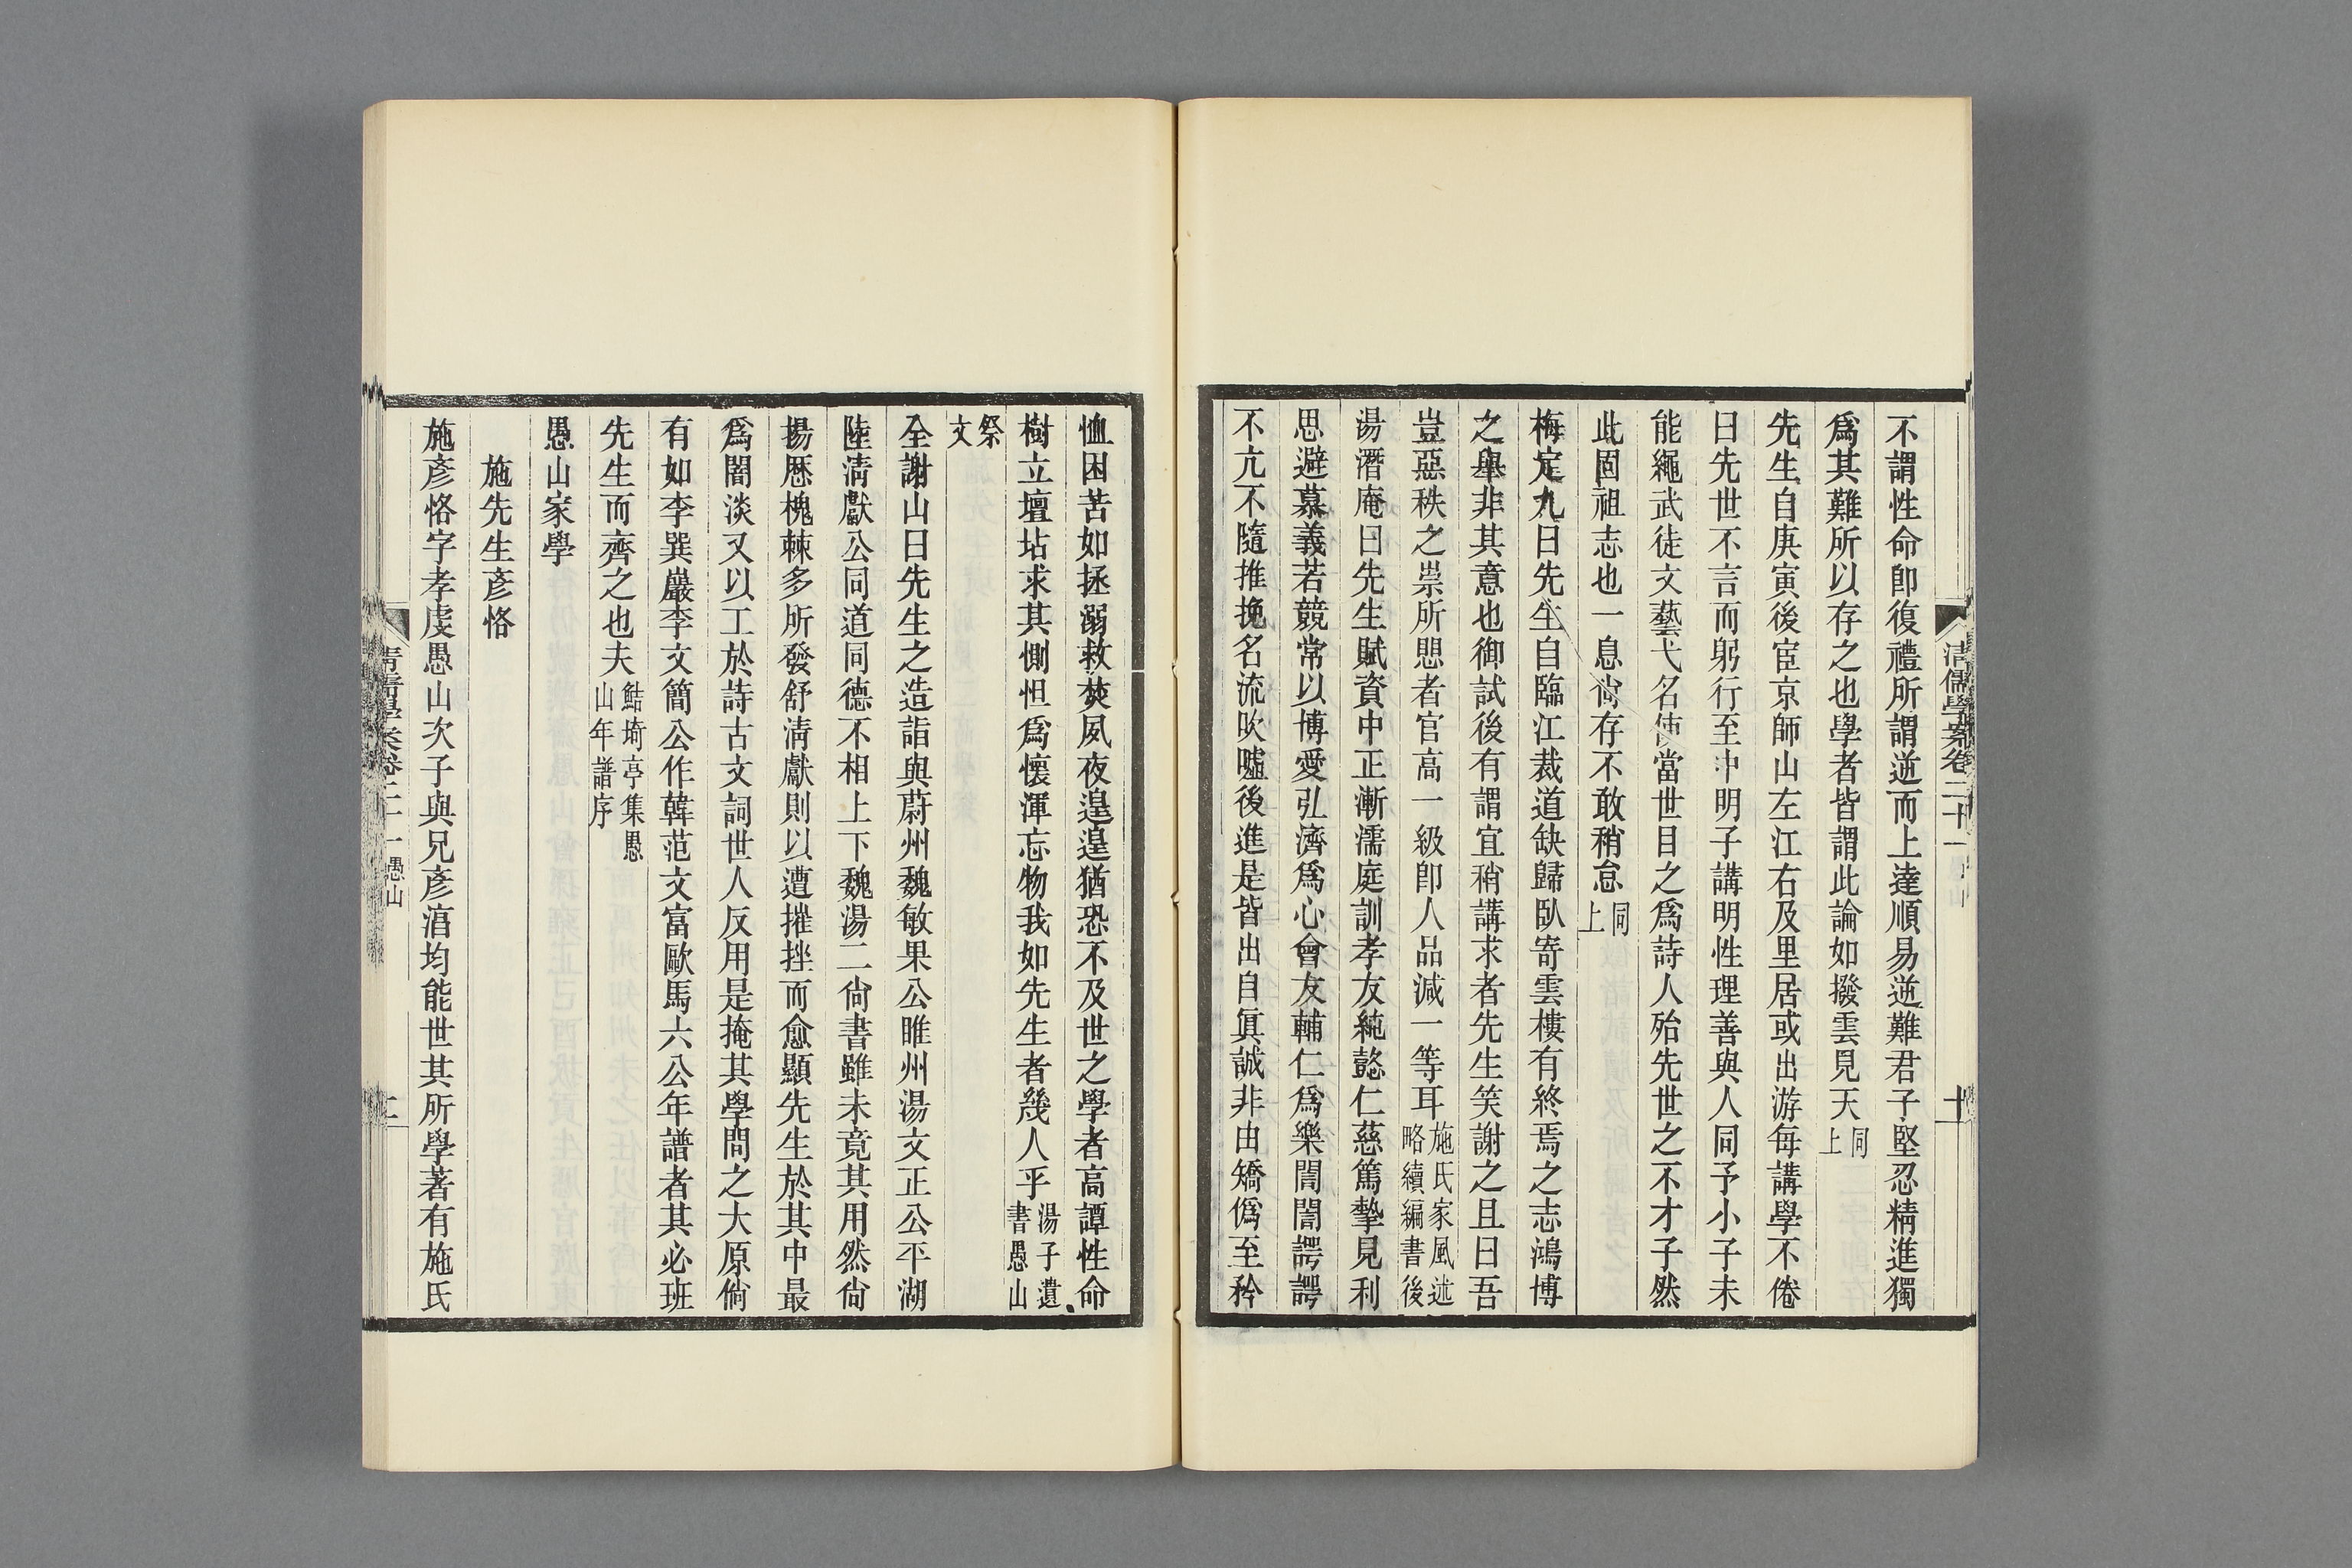 不謂性命卽復禮所謂逆而上達順易逆難君子堅忍精進獨
爲其難所以存之也學者皆謂此論如撥雲見天同上
先生自庚寅後宦京師山左江右及里居或出游每講學不倦
曰先世不言而躬行至中明子講明性理善與人同予小子未
能繩武徒文藝弋名使當世目之爲詩人殆先世之不才子然
此固祖志也一息尙存不敢稍怠同上
梅定九曰先生自臨江裁道缺歸臥寄雲樓有終焉之志鴻博
之舉非其意也御試後有謂宜稍講求者先生笑謝之且曰吾
豈惡秩之崇所思者官高一級卽人品減一等耳施氏家風述略續編書後
湯潛庵曰先生賦資中正漸濡庭訓孝友純懿仁慈篤摯見利
思避慕義若競常以博愛弘濟爲心會友輔仁爲樂誾誾諤諤
不亢不隨推挽名流吹噓後進是皆出自眞誠非由矯僞至矜
恤困苦如拯溺救焚夙夜遑遑猶恐不及世之學者高譚性命
樹立壇坫求其惻怛爲懷渾忘物我如先生者幾人乎湯子遺書愚山
祭文
全謝山曰先生之造詣與蔚州魏敏果公睢州湯文正公平湖
陸淸獻公同道同德不相上下魏湯二尙書雖未竟其用然尙
揚歷槐棘多所發舒淸獻則以遭摧挫而愈顯先生於其中最
爲闇淡又以工於詩古文詞世人反用是掩其學問之大原倘
有如李巽巖李文簡公作韓范文富歐馬六公年譜者其必班
先生而齊之也夫鮚埼亭集愚山年譜序
愚山家學
施先生彥恪
施彥恪字孝虔愚山次子與兄彥淳均能世其所學著有施氏
清儒學案卷二十一
十
清儒學案卷二十一 愚山